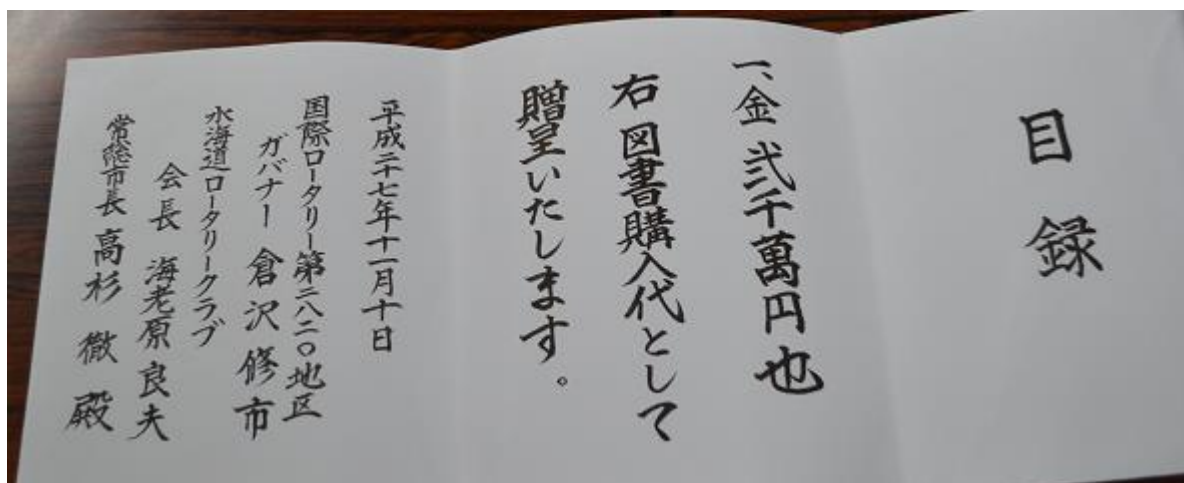 目録
一、金 弐千萬円也
右 図書購入代として
贈呈いたします。
平成二十七年十一月十日
国際ロータリー第二八二〇地区
ガバナー 倉沢修市
水海道ロータリークラブ
会長 海老原良夫
常総市長 高杉徹殿